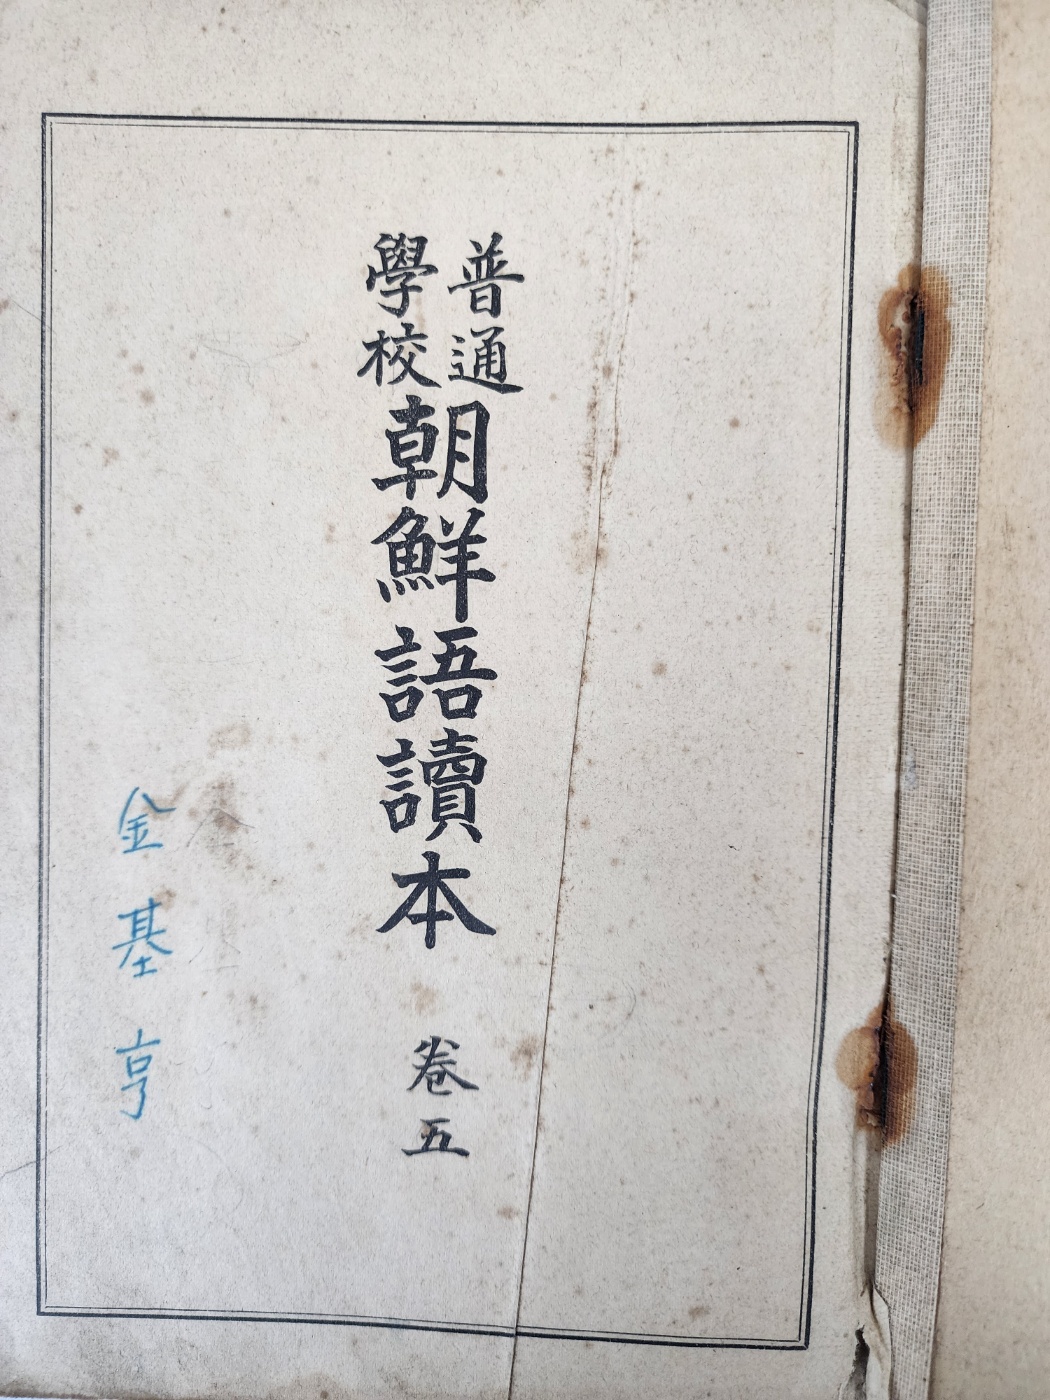 普通
學校
朝鮮語讀本
卷五
金基亨